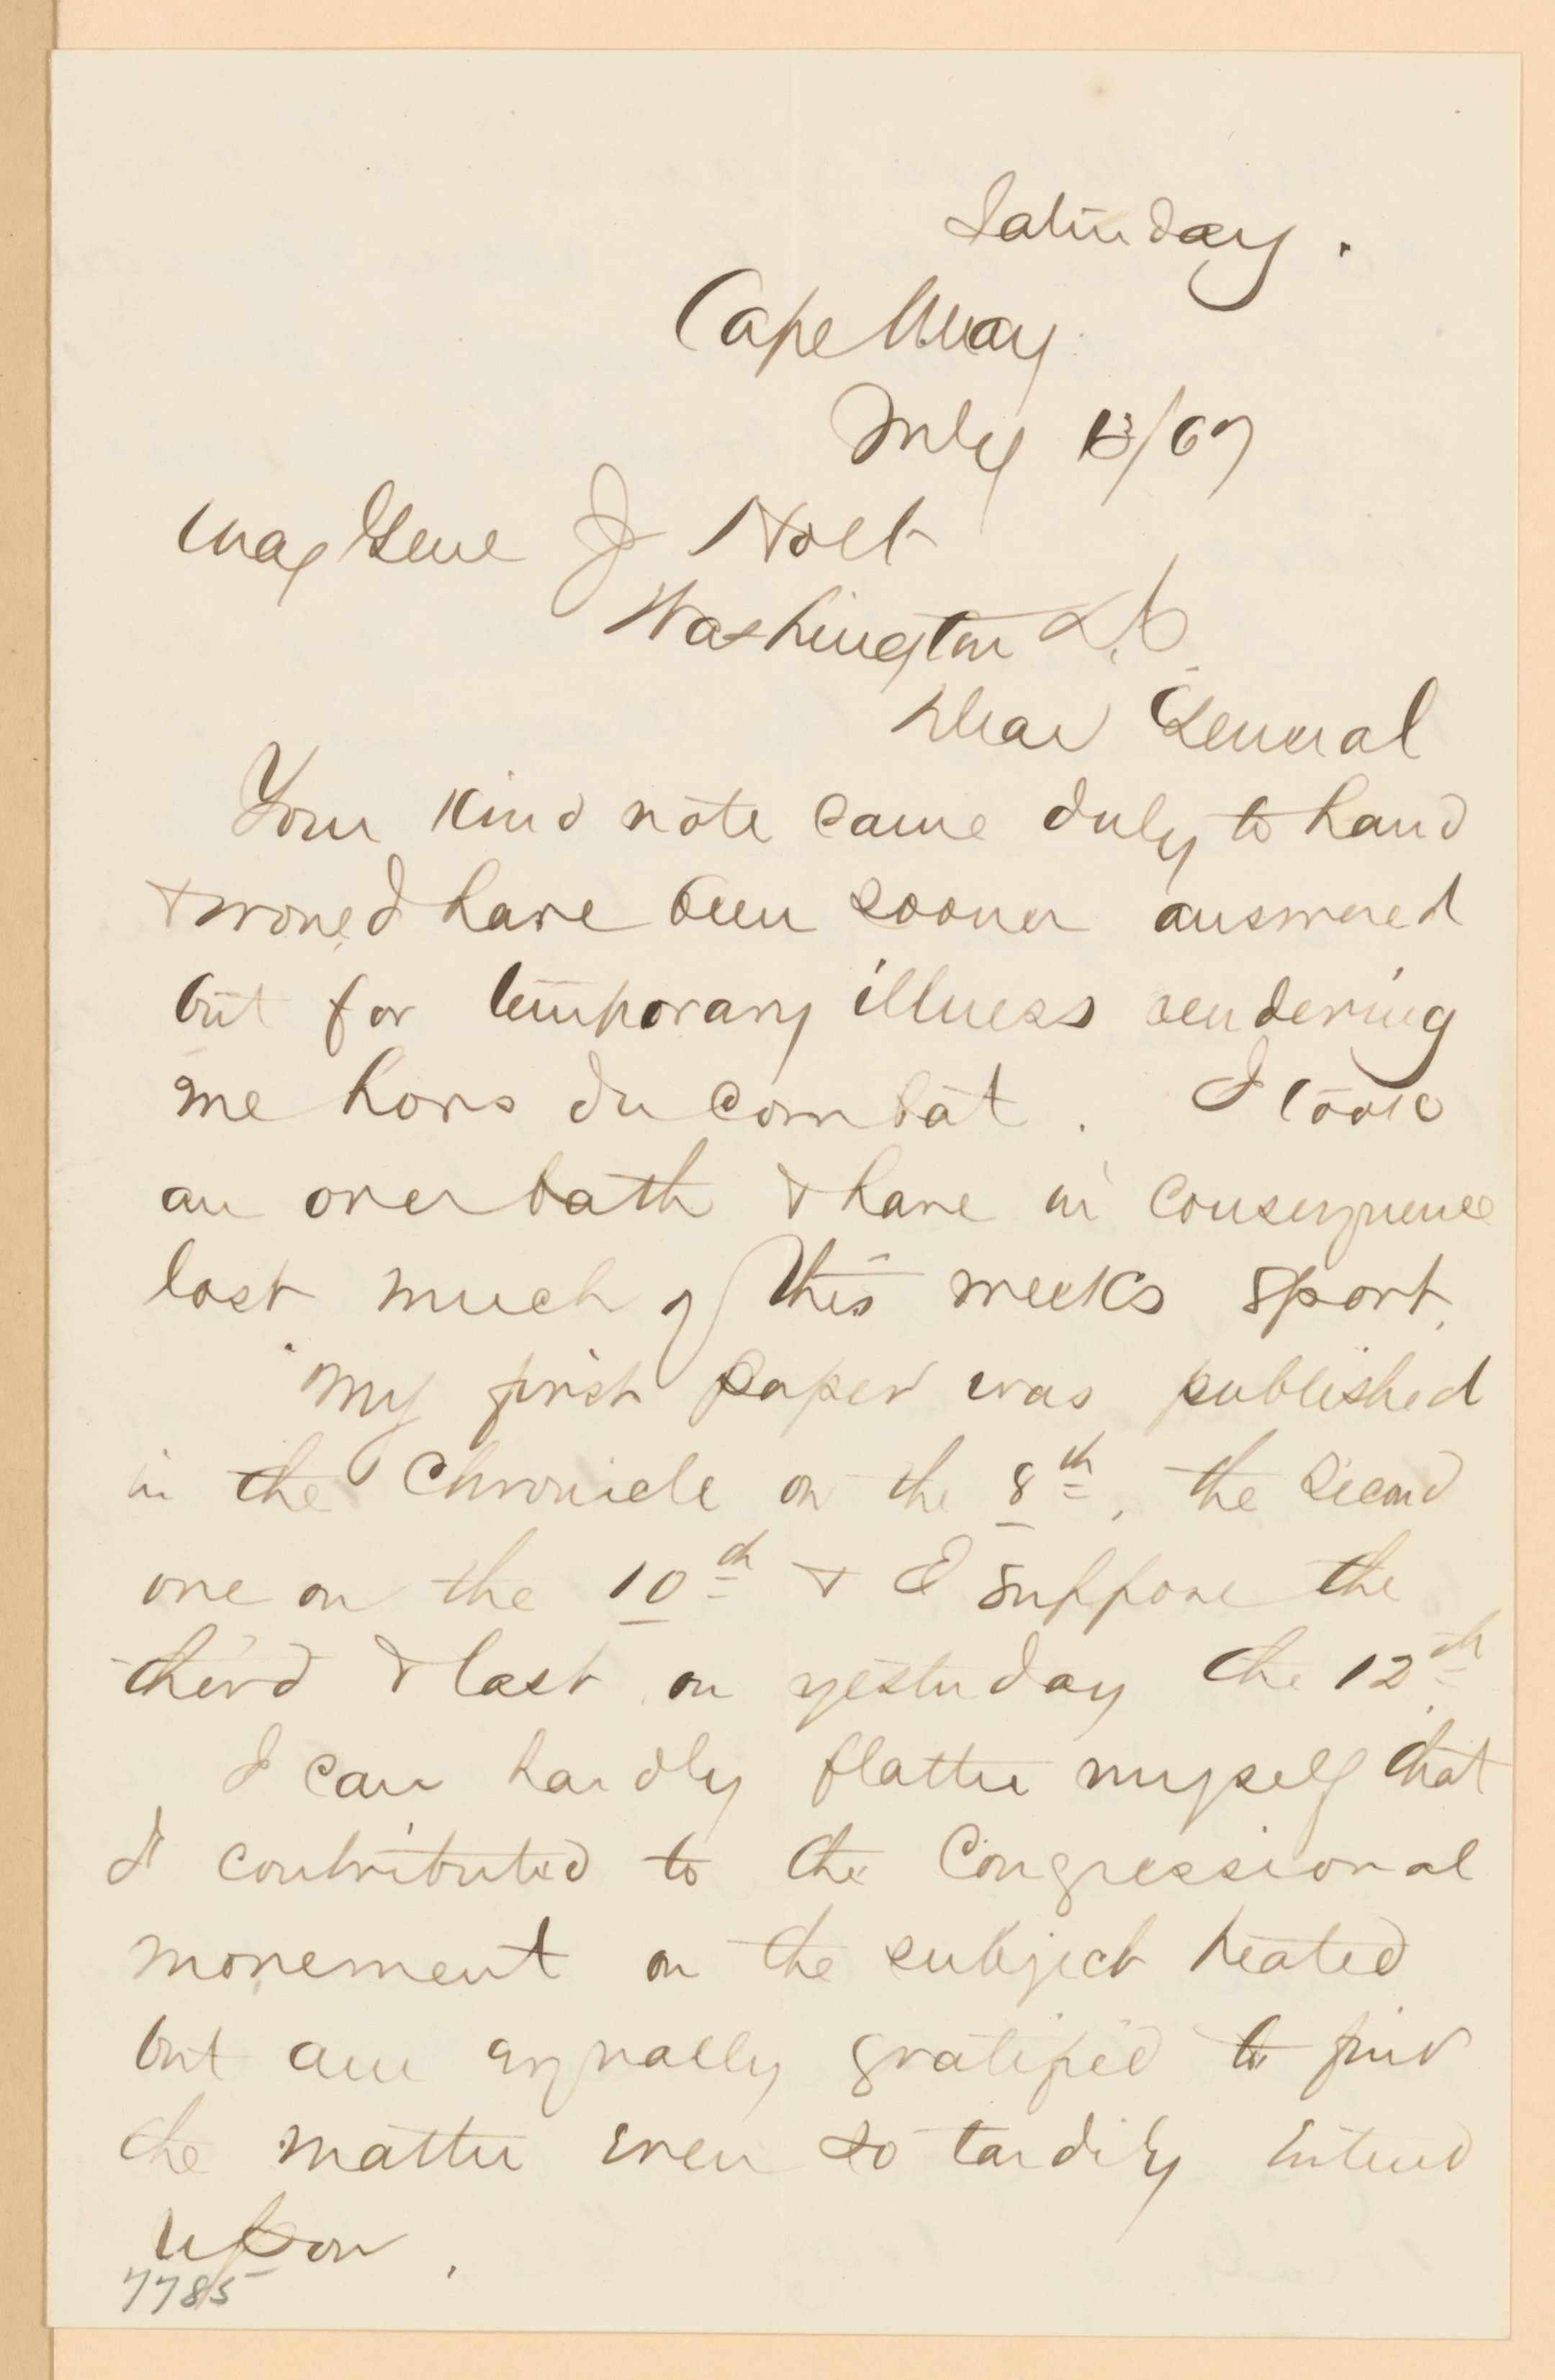 Saturday.
Cape May
July 13/67
Maj Genl J Holt
Washington D.C.
Dear General
Your kind note came duly to hand
& would have been sooner answered
but for temporary illness rendering
me hors du combat. I took
an over bath & have in consequence
lost much of this weeks sport.
My first paper was published
in the Chronicle on the 8th, the second
one on the 10th & I suppose the
third & last on yesterday the 12th.
I can hardly flatter myself that
I contributed to the Congressional
movement on the subject treated
but am equally gratified to find
the matter even so tardily entered
upon.
7785